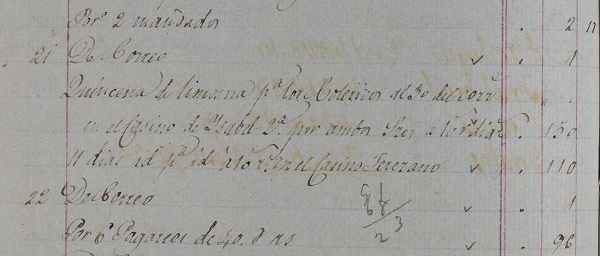 Por 2 mandados . 2 17
21 De Correo . 1
Quincena de limosna pª los Colericos al 30 del corr
en el Casino de Ysabel 2ª por ambos Sres a 10 rs diar . 150
11 dias id pª id a 10 rs en el Casino Jerezano . 110
22 De Correo . 1
Por 6 Pagareos de 40 . 8 rs . 96
2 3